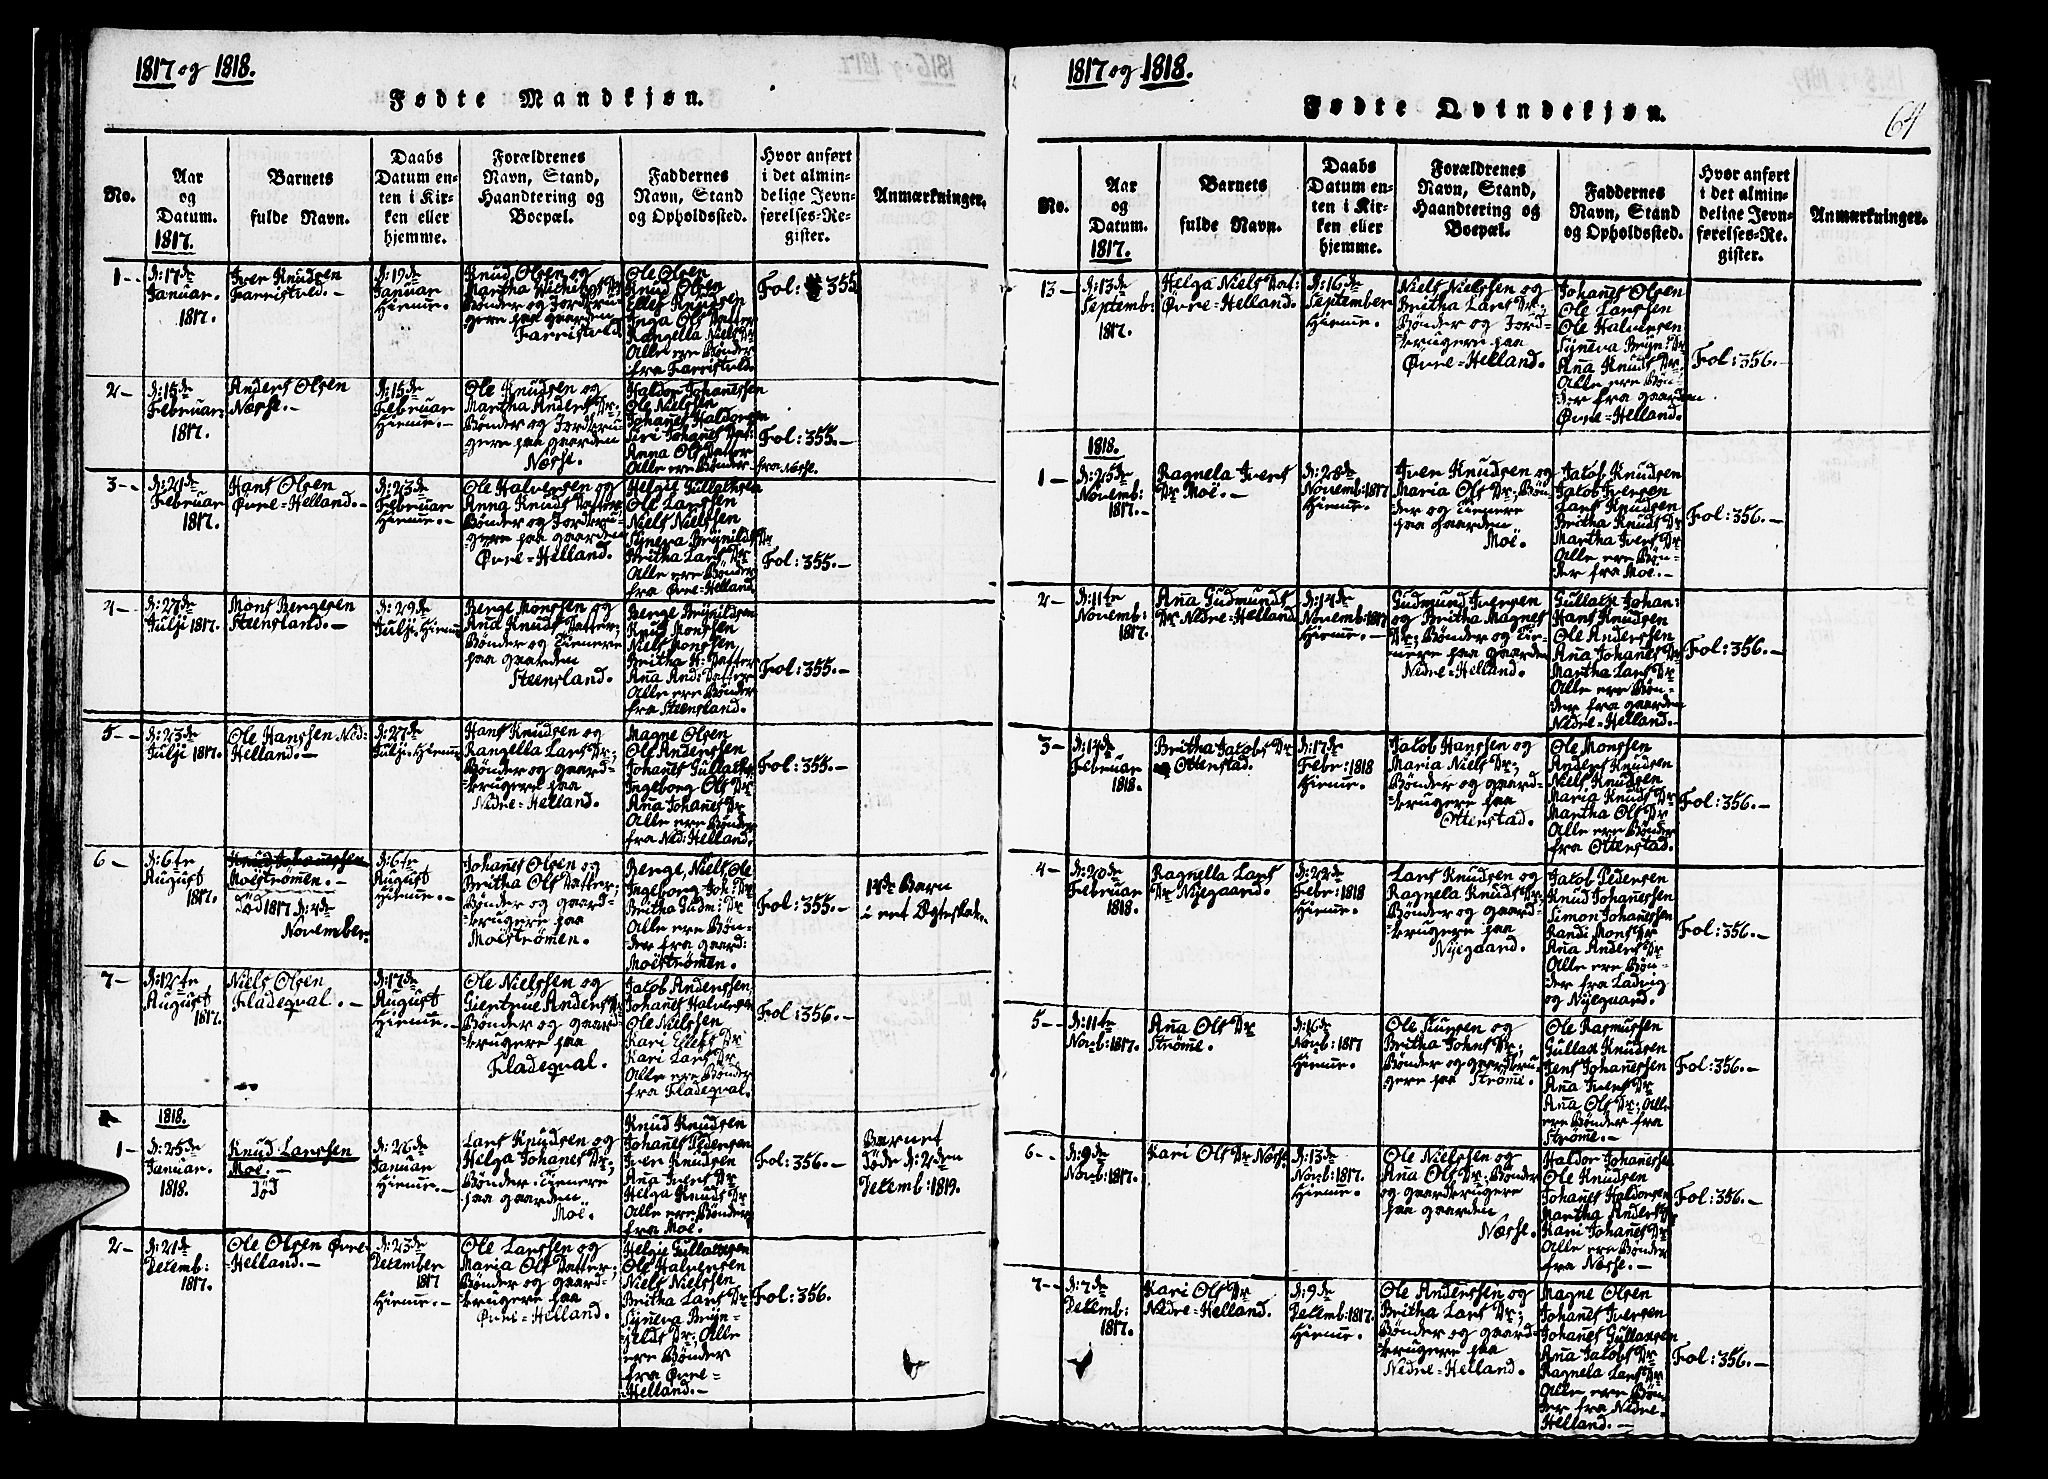 1817 og 1818.
Fødte Mandkjøn.
No.
Aar
og
Datum.
1817.
Barnets
fulde Navn.
Daabs
Datum en-
ten i Kir-
ken eller
hjemme.
Forældrenes
Navn, Stand,
Haandtering og
Boepæl.
Faddernes
Navn, Stand
og Opholdssted.
Hvor anført
i det almin-
delige Jevn-
førelses-Re-
gister.
Anmærkninger.
1--
D:17de
Januar.
1817.
Iver Knudsen
Farristvld.-
D:19de
Januar
Hiemme.
Knud Olsen og
Martha
Bønder og Jordbru-
gere paa gaarden
Ole Olsen
Knud Olsen
Ellef Knudsen
Inga Ols Datter
Rangella Niels Dr
Alle ere Bønder
fra
Fol: 355
2-
D:15de
Februar:
1817.
Anders Olsen
Næsse.-
D:15de
Februar
Hiemme.-
Ole Knudsen og
Martha Anders Dr;
Bønder og Jordbru-
gere paa gaarden
Næsse.
Haldor Johanessen
Ole Nielsen
Johanes Haldorsen
Siri Johanes Dat:
Anna Ols Datter
Alle ere Bønder
fra Næsse.
Fol:355.-
3--
D:21de
Februar
1817.
Hans Olsen
Øvre=Helland.-
D:23de
Februar
Hiemme.-
Ole Halversen og
Anna Knuds Datter
Bønder og Jordbru-
gere paa gaarden
Øvre=Helland.
Helgie Gullachsen
Ole Larssen
Niels Nielssen
Syneva Brynilds Dr
Britha Lars Dr
Alle ere Bønder
fra Øvre=Helland.
Fol:355.-
4--
D:27de
Julji 1817.
Mons Bergesen
Steensland.-
D:29de
Julji. Hiemme
Berge Monssen og
Ana Knuds Datter;
Bønder og Tienere
paa gaarden
Steensland.
Berge Brynildsen
Knud Monssen
Niels Monssen
Britha H: Datter
Ana And: Datter
Alle ere Bønder
fra Steensland.
Fol:355.-
5--
D:23de
Julji 1817.
Ole Hanssen Ned:
Helland.-
D:27de
Julji. Hiemme
Hans Knudsen og
Rangella Lars Dr;
Bønder og gaard-
brugere paa
Nedre=Helland.
Magne Olsen
Ole Anderssen
Johanes Gullachs
Ingeborg Ols Dr
Ana Johanes Dr
Alle ere Bønder
fra Ned: Helland.
Fol:355.-
6-
D:6te
August
1817.
Knud Johanessen
Moeströmen.-
Död 1817 D:2de
November.
D:6te
August
Hiemme.-
Johanes Olsen og
Britha Ols Datter;
Bønder og gaard-
brugere paa
Moeströmen.
Berge, Niels, Ole
Ingeborg Joh: Dr
Britha Gudm: Dr
Alle ere Bøn-
der fra gaard:
Moeströmen.
Fol:355.-
12de Barn
i eet Ægteskab.
7-
D:12te
August
1817.
Niels Olsen
Fladeqval.-
D:17de
August
Hiemme.-
Ole Nielssen og
Giertrue Anders Dr
Bønder og gaard-
brugere paa
Fladeqval.
Jacob Anderssen,
Johanes Halversen
Ole Nielssen
Kari Ellefs Dr
Kari Lars Dr
Alle ere Bønder
fra Fladeqval.
Fol:356.-
1818.
1-
D:25de
Januar.
1818.
Knud Larssen
Moe.-
Död
D:26de
Januar
Hiemme.-
Lars Knudsen og
Helga Johanes Dr;
Bønder-Tienere
paa gaarden
Moe.
Knud Knudsen
Johanes Pedersen
Iver Knudsen
Ana Ivers Dr
Helga Knuds Dr
Alle ere Bønder
fra Moe.
Fol:356.-
Barnet
Døde D:2den
Decemb:1819.
2-
D:21de
Decemb:
1817.
Ole Olsen Øvre-
Helland.-
D:23de
December
1817
Hiemme.-
Ole Larssen og
Maria Ols Datter;
Bønder og gaard-
brugere paa
Øvre=Helland.
Helgie Gullachsen
Ole Halversen
Niels Nielssen
Britha Lars Dr
Synneva Bryn-
jelds Dr; Alle
ere Bønder
fra Øvre-
Helland.-
Fol:356.
1817 og 1818.
Fødte Qvindekjøn.
64
No.
Aar
og
Datum.
1817.
Barnets
fulde Navn.
Daabs
Datum en-
ten i Kir-
ken eller
hjemme.
Forældrenes
Navn, Stand,
Haandtering og
Boepæl.
Faddernes
Navn, Stand
og Opholdssted.
Hvor anført
i det almin-
delige Jevn-
førelses-Re-
gister.
Anmærkninger.
13-
D:13de
Septemb:
1817.
Helga Niels Dat:
Øvre=Helland.
D:16de
September
Hiemme.
Niels Nielssen og
Britha Lars Dr;
Bønder og Jord-
brugere paa
Øvre=Helland.
Johanes Olsen
Ole Larssen
Ole Halversen
Synneva Bryn: Dr
Ana Knuds Dr.
Alle ere Bøn-
der fra gaarden
Øvre=Helland.
Fol:356.-
1818.
1-
D:25de
Novemb:
1817.
Ragnela Ivers
Dr Moe.-
D:28de
Novemb:1817
Hiemme.
Iver Knudsen og
Maria Ols Dr; Bøn-
der og Tienere
paa gaarden
Moe.
Jacob Knudsen
Jacob Iversen
Lars Knudsen
Britha Knuds Dr
Martha Ivers Dr
Alle ere Bøn-
der fra Moe.-
Fol:356.-
2-
D:11te
Novemb:
1817.
Ana Gudmunds
Dr Nedre=Helland
D:14de
Novemb:1817
Hiemme.-
Gudmund Iversen
og Britha Magnes
Dr; Bønder og Tie-
nere paa gaarden
Nedre=Helland.
Gullach Johan:
Hans Knudsen
Ole Anderssen
Ana Johanes Dr
Martha Lars Dr
Alle ere Bøn-
der fra gaarden
Nedre=Helland.-
Fol:356.-
3-
D:12de
Februar
1818.
Britha Jacobs Dr
Ottenstad.
D:17de
Febr:1818
Hiemme.
Jacob Hanssen og
Maria Niels Dr;
Bønder og gaard-
brugere paa
Ottenstad.
Ole Monssen
Anders Knudsen
Niels Knudsen
Maria Knuds Dr
Martha Ols Dr
Alle ere Bønder
fra Ottenstad.
Fol:356.-
4-
D:20de
Februar
1818.
Ragnella Lars
Dr Nyegaard.
D:22de
Febr:1818
Hiemme.
Lars Knudsen og
Ragnela Knuds Dr;
Bønder og gaard-
brugere paa
Nyegaard.
Jacob Pedersen
Knud Johanessen
Simon Johanessen
Randi Mons Dr
Ana Anders Dr
Alle ere Bøn-
der fra Ladvig
og Nyegaard.
Fol:356.-
5--
D:11te
Novb:1817.
Ana Ols Dr
Strøme.
D:16de
Novb:1817
Hiemme.
Ole og
Britha Johns Dr;
Bønder og gaardbru-
gere paa Strøme.
Ole Rasmussen
Gullach Knudsen
Jens Johanessen
Ana Ivers Dr
Ana Ols Dr; Alle
ere Bønder fra
Strøme.-
Fol:356.-
6--
D:9de
Novb:1817.
Kari Ols Dr Næsse.
D:13de
Novb:1817.
Hiemme.
Ole Nielssen og
Ana Ols Dr; Bønder
og gaardbrugere
paa gaarden
Næsse.
Haldor Johanessen
Ole Knudsen
Johanes Haldorsen
Martha Anders Dr
Kari Johanes Dr
Alle ere Bønder
fra Næsse.-
Fol:356.-
7--
D:7de
Decemb:
1817.
Kari Ols Dr
Nedre=Helland.
D:9de
Decemb:1817.
Hiemme.
Ole Anderssen og
Britha Lars Dr;
Bønder og gaard-
brugere paa
Nedre=Helland.
Magne Olsen
Johanes Iversen
Johanes Gullachsen
Ana Jacobs Dr
Ragnela Lars Dr
Alle ere Bøn-
der fra Nedre-
Helland.-
Fol:356.-